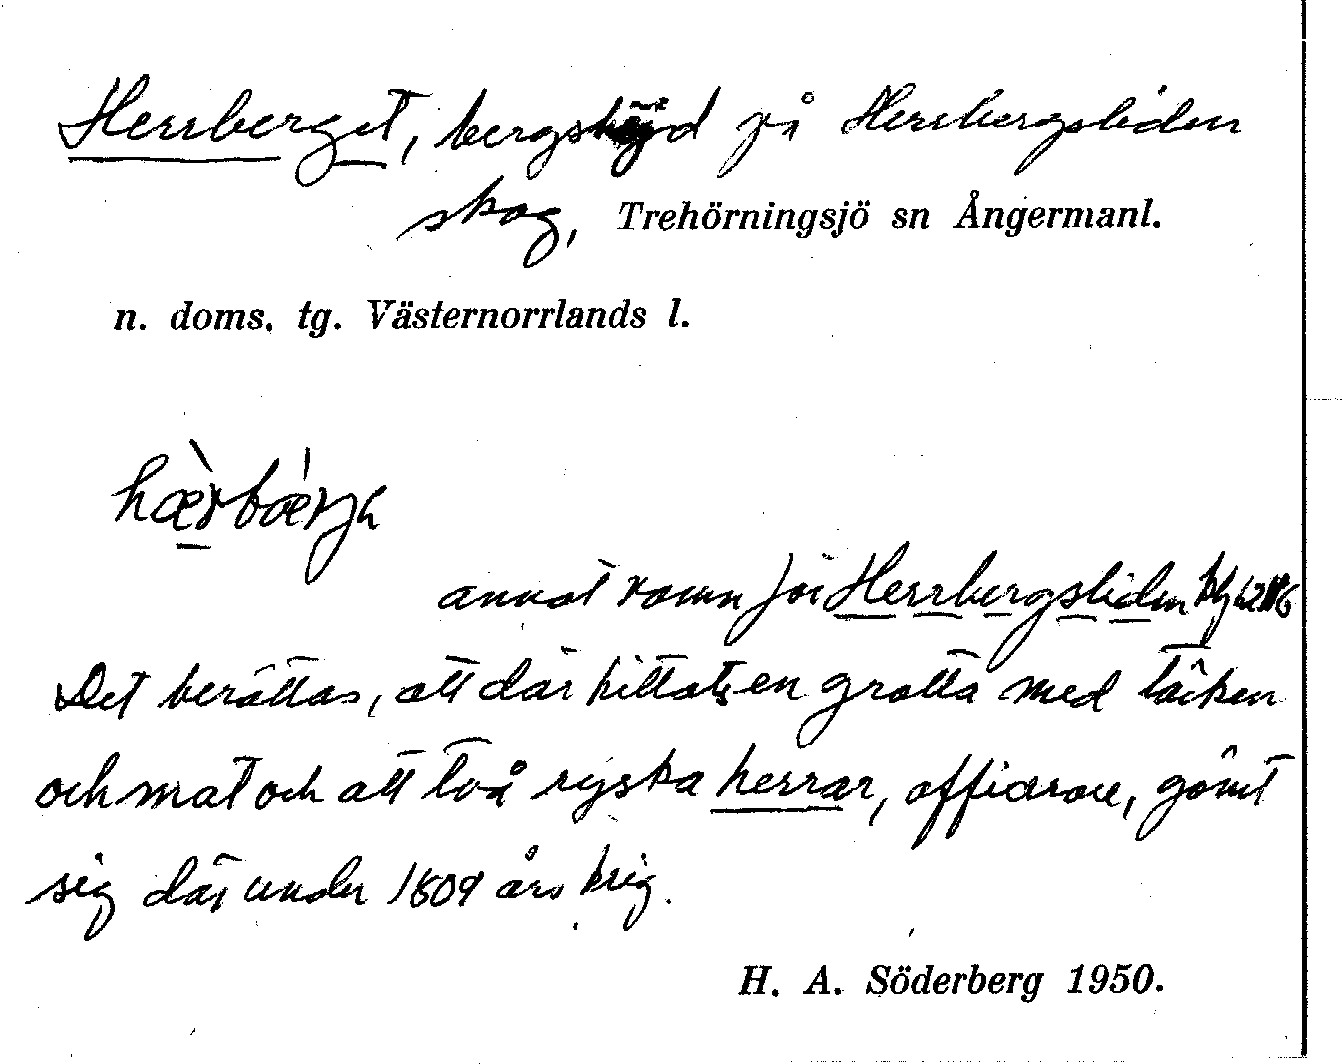 Herrberget, bergshöjd på Herrbergsliden
skog, Trehörningsjö sn Ångermanl.
n. doms. tg. Västernorrlands l.
hæ̀rbǽrjɐ
annat namn för Herrbergsliden
Det berättas, att där hittats en grotta med täcken
och mat och att två ryska herrar, officerare, gömt
sig där under 1809 års krig.
H. A. Söderberg 1950.